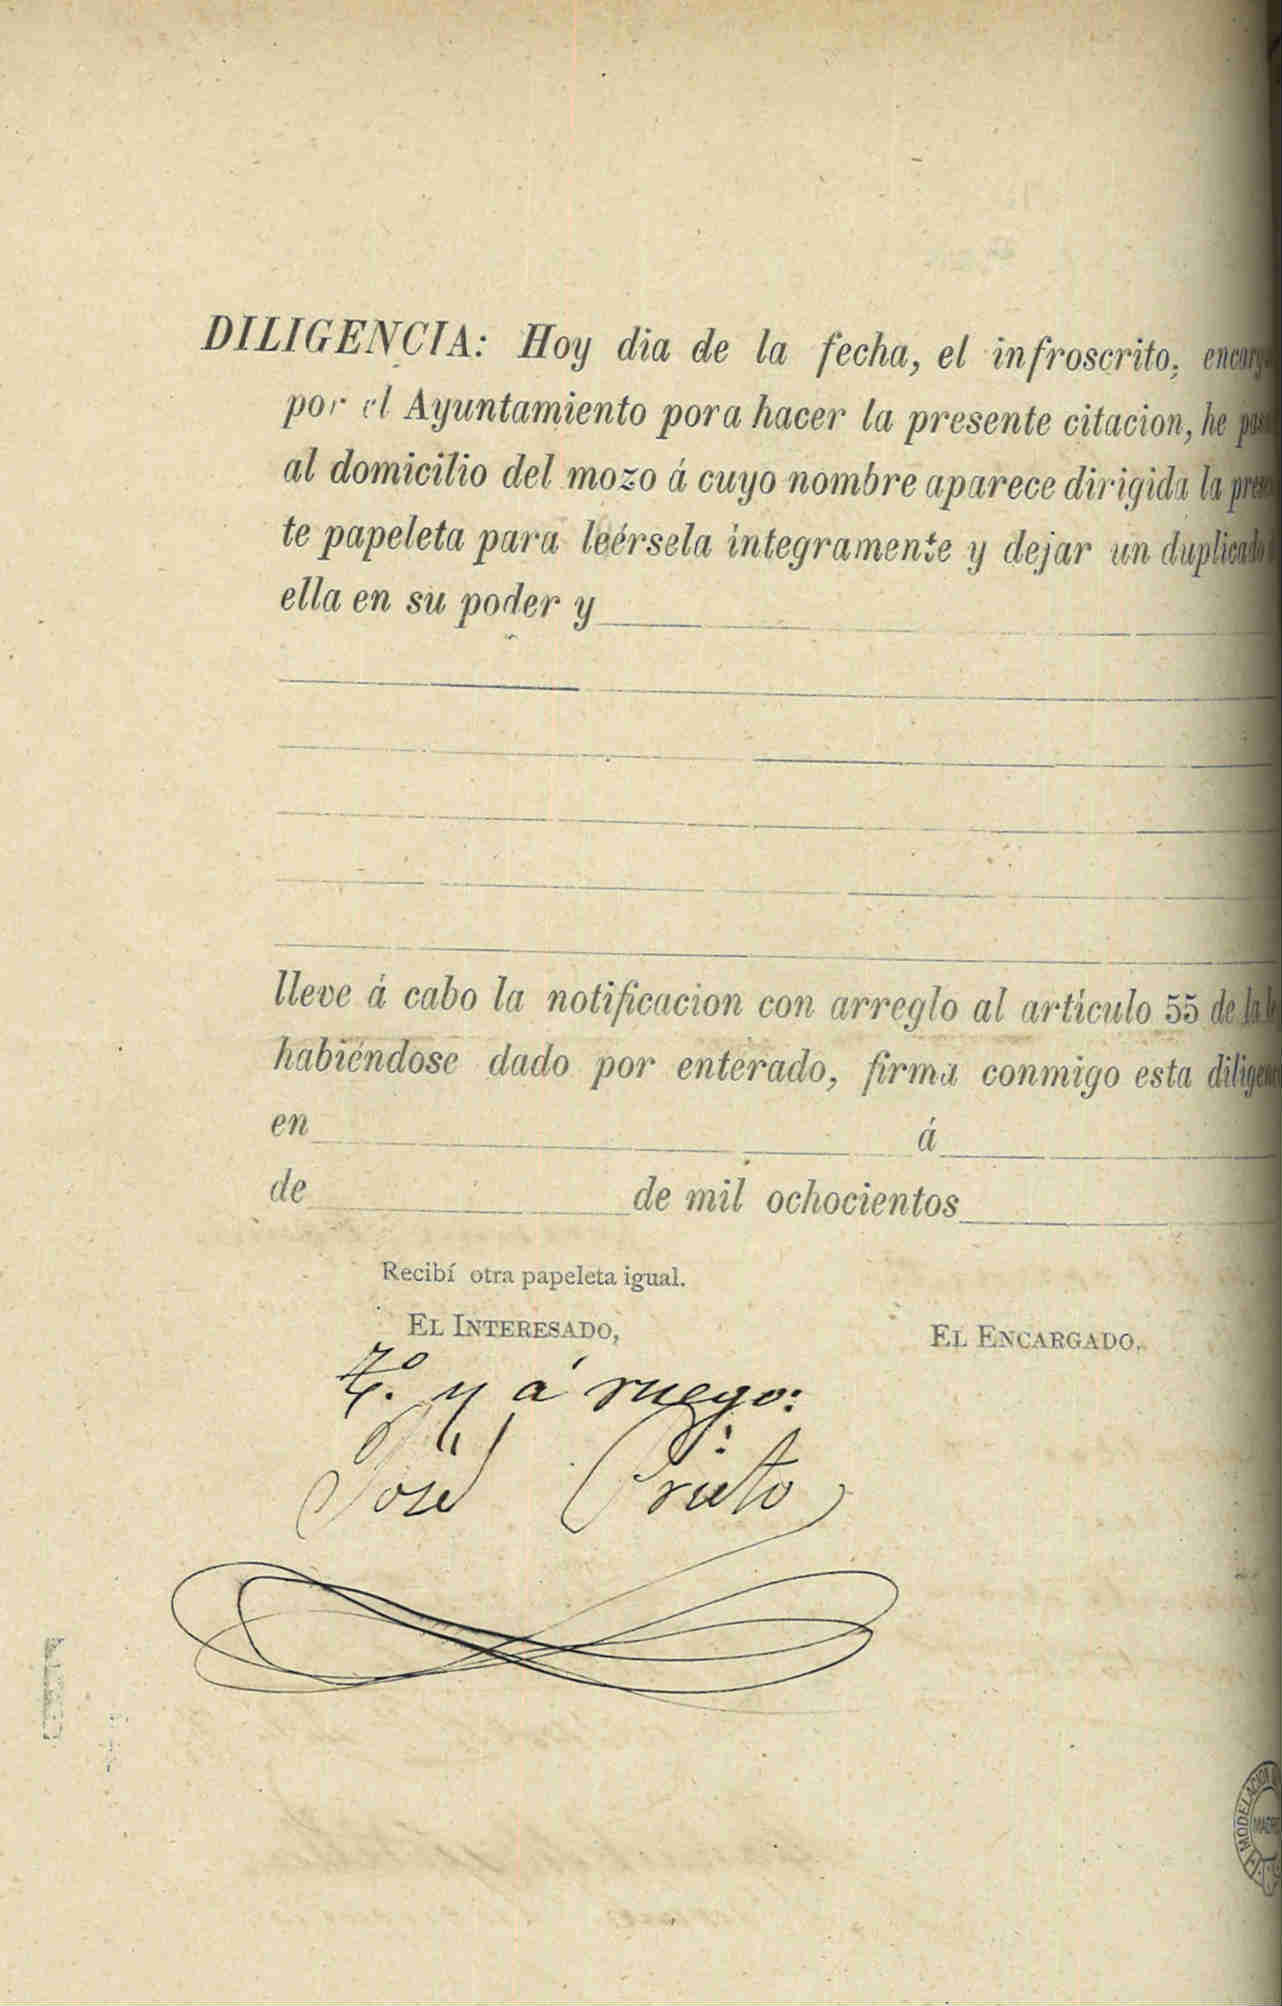 DILIGENCIA: Hoy dia de la fecha, el infroscrito, encarg
por el Ayuntamiento pora hacer la presente citacion, he pas
al domicilio del mozo á cuyo nombre aparece dirigida la presen
te papeleta para leérsela integramente y dejar un duplicado
ella en su poder y
lleve á cabo la notificacion con arreglo al artículo 55 de la le
habiéndose dado por enterado, firma conmigo esta diligenc
en á
de de mil ochocientos
Recibí otra papeleta igual.
EL INTERESADO,
EL ENCARGADO,
T.º y á ruego:
José Prieto
MODELACION
MADRI